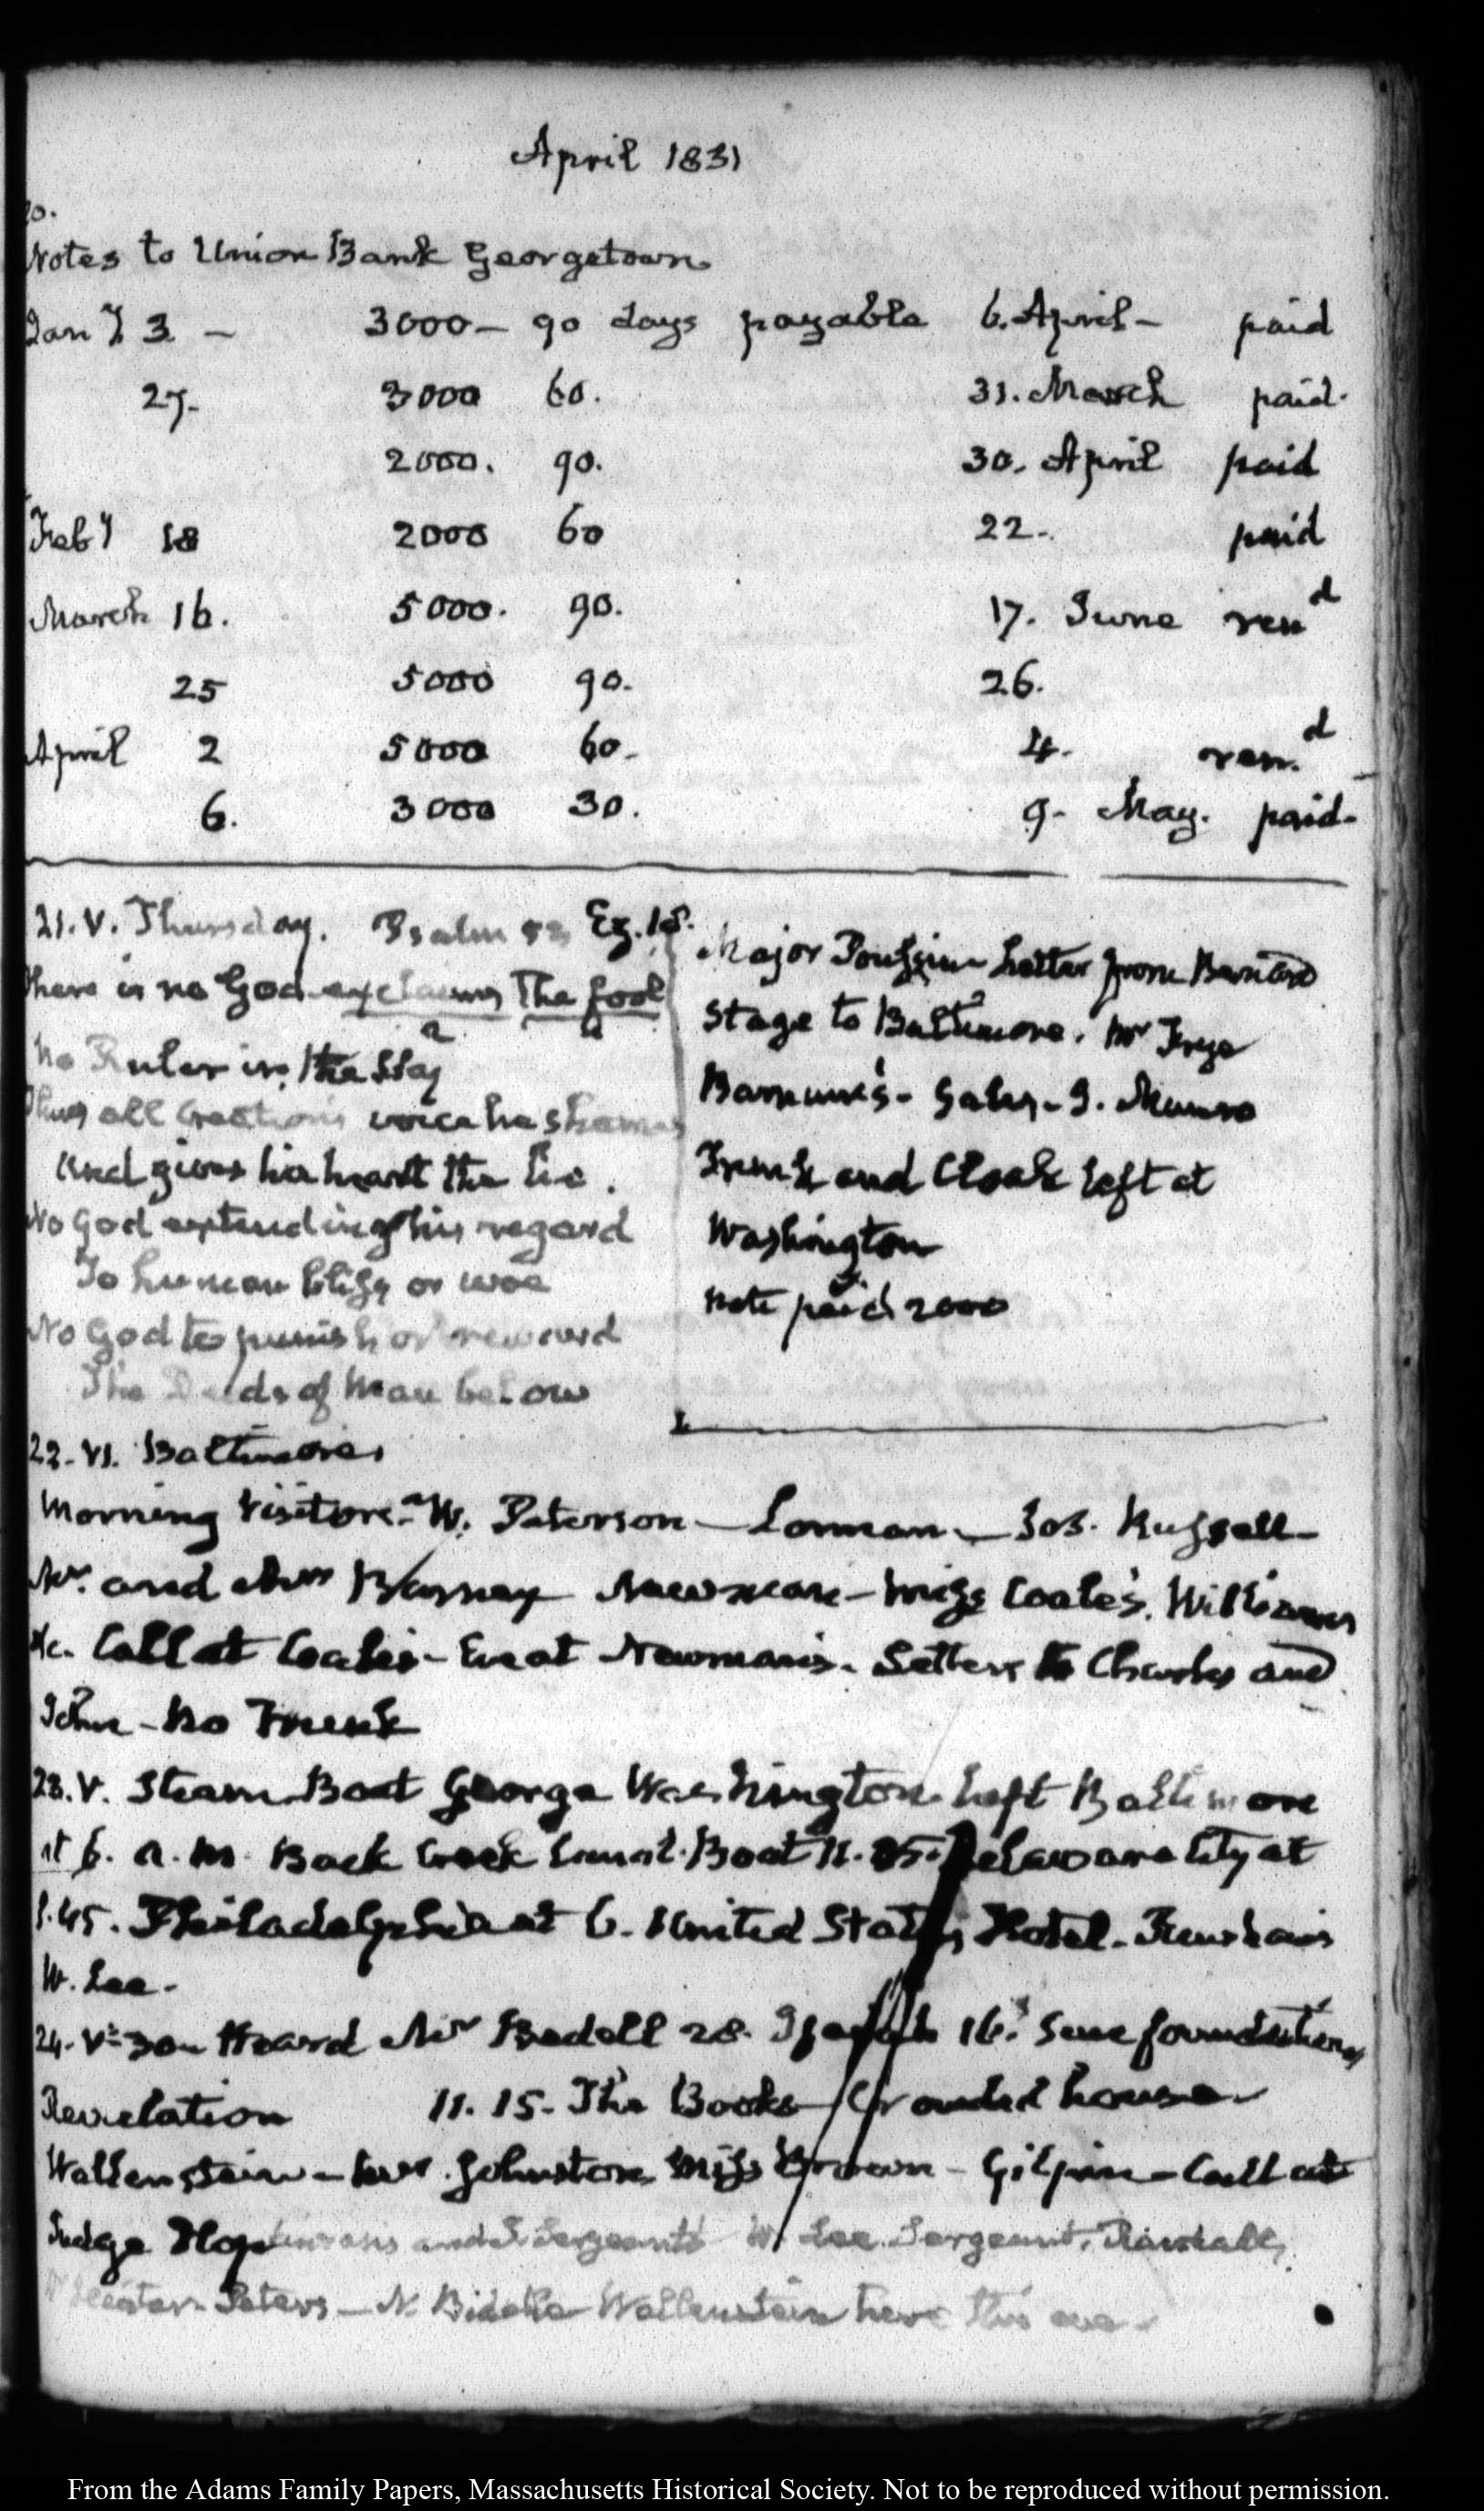 April 1831
20.
Notes to Union Bank Georgetown
Jany 3 — 3000 — 90 days payable 6. April — paid
27. 3000 60. 31. March paid.
2000. 90. 30. April paid
Feby 18 2000 60 22. paid
March 16. 5000. 90. 17. June rend
25 5000 90. 26.
April 2 5000 60. 4. ren.d
6. 3000 30. 9. May. paid.
21. V. Thursday. Psalm 53 Ez. 18.
There is no God exclaims The fool
a a
No Ruler in the Sky
Thus all Creation's voice he shames
And gives his heart the lie.
No God extending his regard
To human bliss or woe
No God to punish or reward
The Deeds of Man below
Major Poussin Letter from Bernard
Stage to Baltimore. Mr Frye
Barnum's. J. Munro
Trunk and Cloak left at
Washington
Note paid 2000
22. VI. Baltimore
Morning Visitors. W. Paterson — Lorman — Jos. Russell —
Mr. and Mrs Barney Newman — Miss Coale's. Williams
&c. Call at Coale's — Eve at Newman's. Letters to Charles and
John — No Trunk
23. V. Steam Boat George Washington left Baltimore
at 6. A.M. Back Creek Canal. Boat 11. Delaware City at
1.45. Philadelphia at 6. United States Hotel.
W. Lee.
24. Heard Mr Bedell 28. Isaiah 16. Sure foundation
Revelation 11. 15. The Books Crowded house
Wallenstein — Mrs. Johnston Miss Brown — Gilpin — Call at
Judge Hopkinson's and J. Sergeant's W. Lee. Sergeant.
Peters — N. Biddle Wallenstein here this eve.
From the Adams Family Papers, Massachusetts Historical Society. Not to be reproduced without permission.